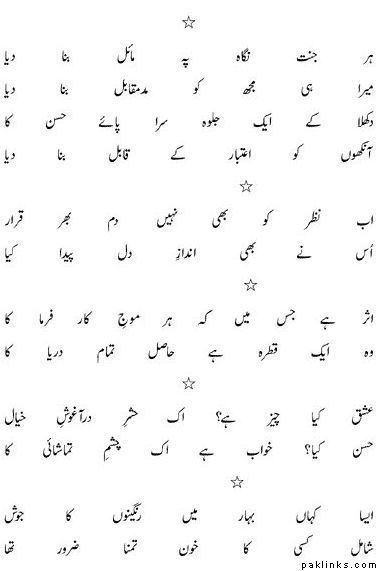 ☆
ہر جنت نگاہ پہ مائل بنا دیا
میرا ہی مجھ کو مدمقابل بنا دیا
دکھلا کے ایک جلوہ سراپائے حسن کا
آنکھوں کو اعتبار کے قابل بنا دیا
☆
اب نظر کو بھی نہیں دم بھر قرار
اُس نے بھی اندازِ دل پیدا کیا
☆
اثر ہے جس میں کہ ہر موجِ کار فرما کا
وہ ایک قطرہ ہے حاصل تمام دریا کا
☆
عشق کیا چیز ہے؟ اک حشرِ درآغوشِ خیال
حسن کیا؟ خواب ہے اک چشمِ تماشائی کا
☆
ایسا کہاں بہار میں رنگینوں کا جوش
شامل کسی کا خونِ تمنا ضرور تھا
paklinks.com